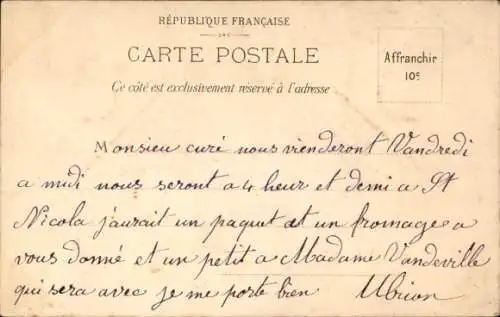 RÉPUBLIQUE FRANÇAISE
CARTE POSTALE
Ce côté est exclusivement réservé à l'adresse
Affranchir
10c
Monsieu curé nous vienderont Vandredi
a midi nous seront a 4 heur et demi a St
Nicola j'aurait un paquet et un fromage a
vous donné et un petit a Madame Vandeville
qui sera avec je me porte bien Ubrion